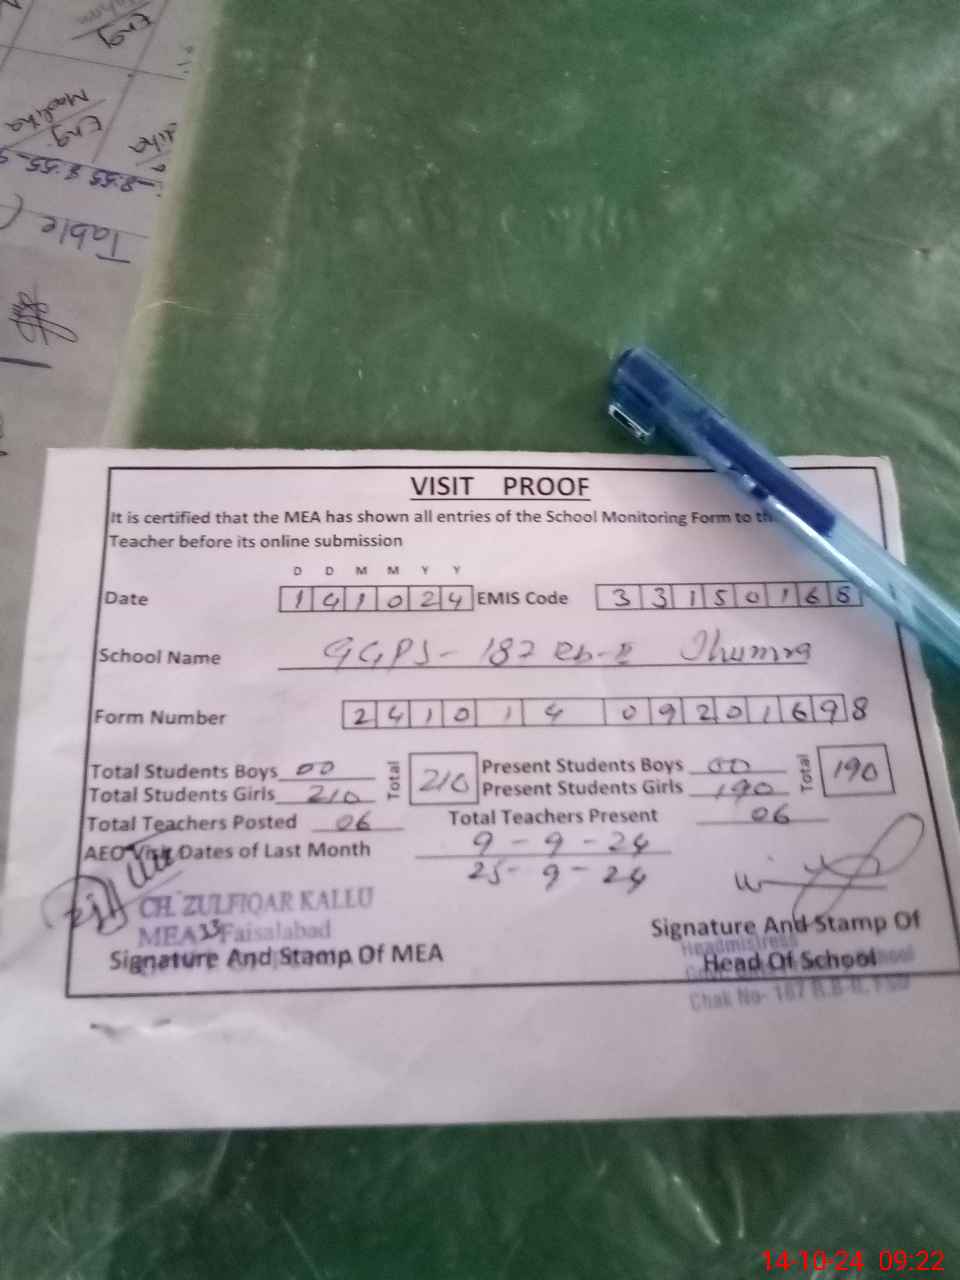 Eng
Madiha
Eng
8:55 8:55
Table (
VISIT PROOF
It is certified that the MEA has shown all entries of the School Monitoring Form to th
Teacher before its online submission
D D M M Y Y
Date 141024 EMIS Code 33150165
School Name GGPS- 187 Rb-II Jhumra
Form Number 24101409201698
Total Students Boys 00 Total 210 Present Students Boys 00 Total 190
Total Students Girls 210 Present Students Girls 190
Total Teachers Posted 06 Total Teachers Present 06
AEO Visit Dates of Last Month 9-9-24
25-9-24
CH. ZULFIQAR KALLU
MEA 33 Faisalabad
Signature And Stamp Of MEA
Signature And Stamp Of
Headmistress
Head Of School
School
Chak No- 187 R.B-II, FSD
14-10-24 09:22